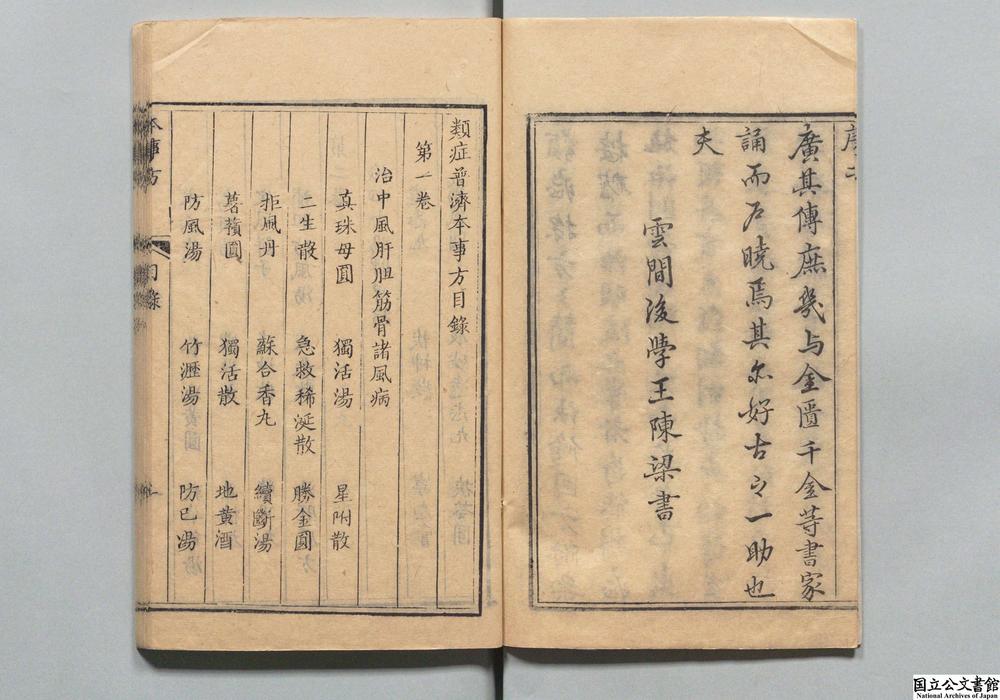 廣其傳庶幾与金匱千金等書家
誦而户曉焉其尔好古之一助也
夫
雲間後學王陳梁書
類症普濟本事方目錄
第一卷
治中風肝胆筋骨諸風病
真珠母圓 獨活湯 星附散
二生散 急救稀涎散 勝金圓
拒風丹 蘇合香丸 續斷湯
薯蕷圓 獨活散 地黄酒
防風湯 竹瀝湯 防已湯
本事方 目錄
国立公文書館
National Archives of Japan